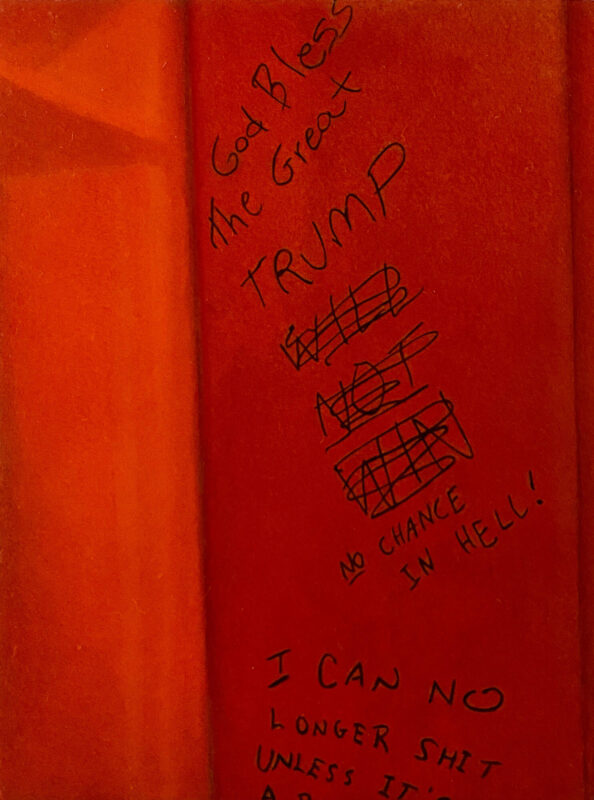 God Bless
The Great
TRUMP
WILL
NOT
WIN
NO CHANCE
IN HELL!
I CAN NO
LONGER SHIT
UNLESS IT'S